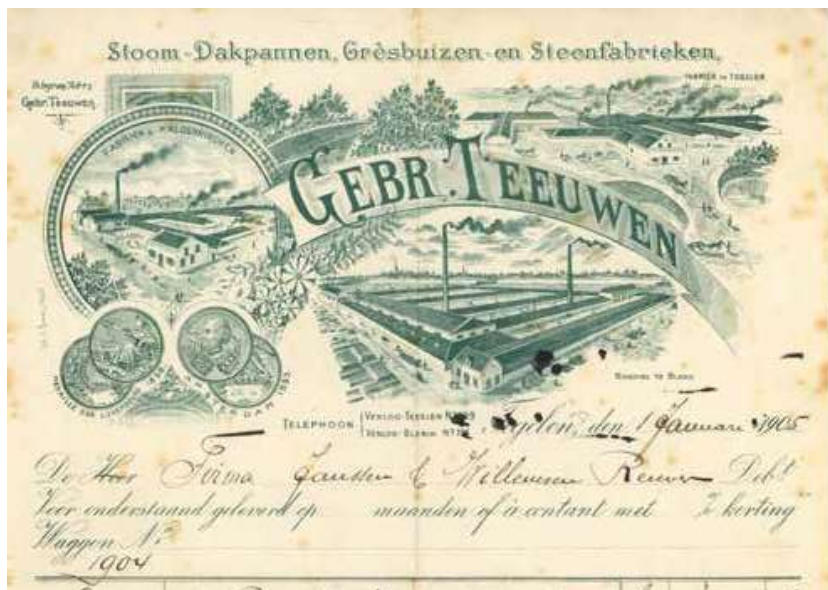 Stoom-Dakpannen, Grèsbuizen-en Steenfabrieken,
Gebr. Teeuwen.
FABRIEK TE TEGELEN
FABRIEK
GEBR. TEEUWEN
AMSTERDAM 1883
BLERIK
TELEPHOON
VENLOO-TEGELEN Nº
VENLOO-BLERIK Nº
den 1 Januari 1905
De Heer Firma Janssen & Willemsen Reuver Debt
Voor onderstaand geleverd op maanden of à contant met % korting
Waggon Nº
1904